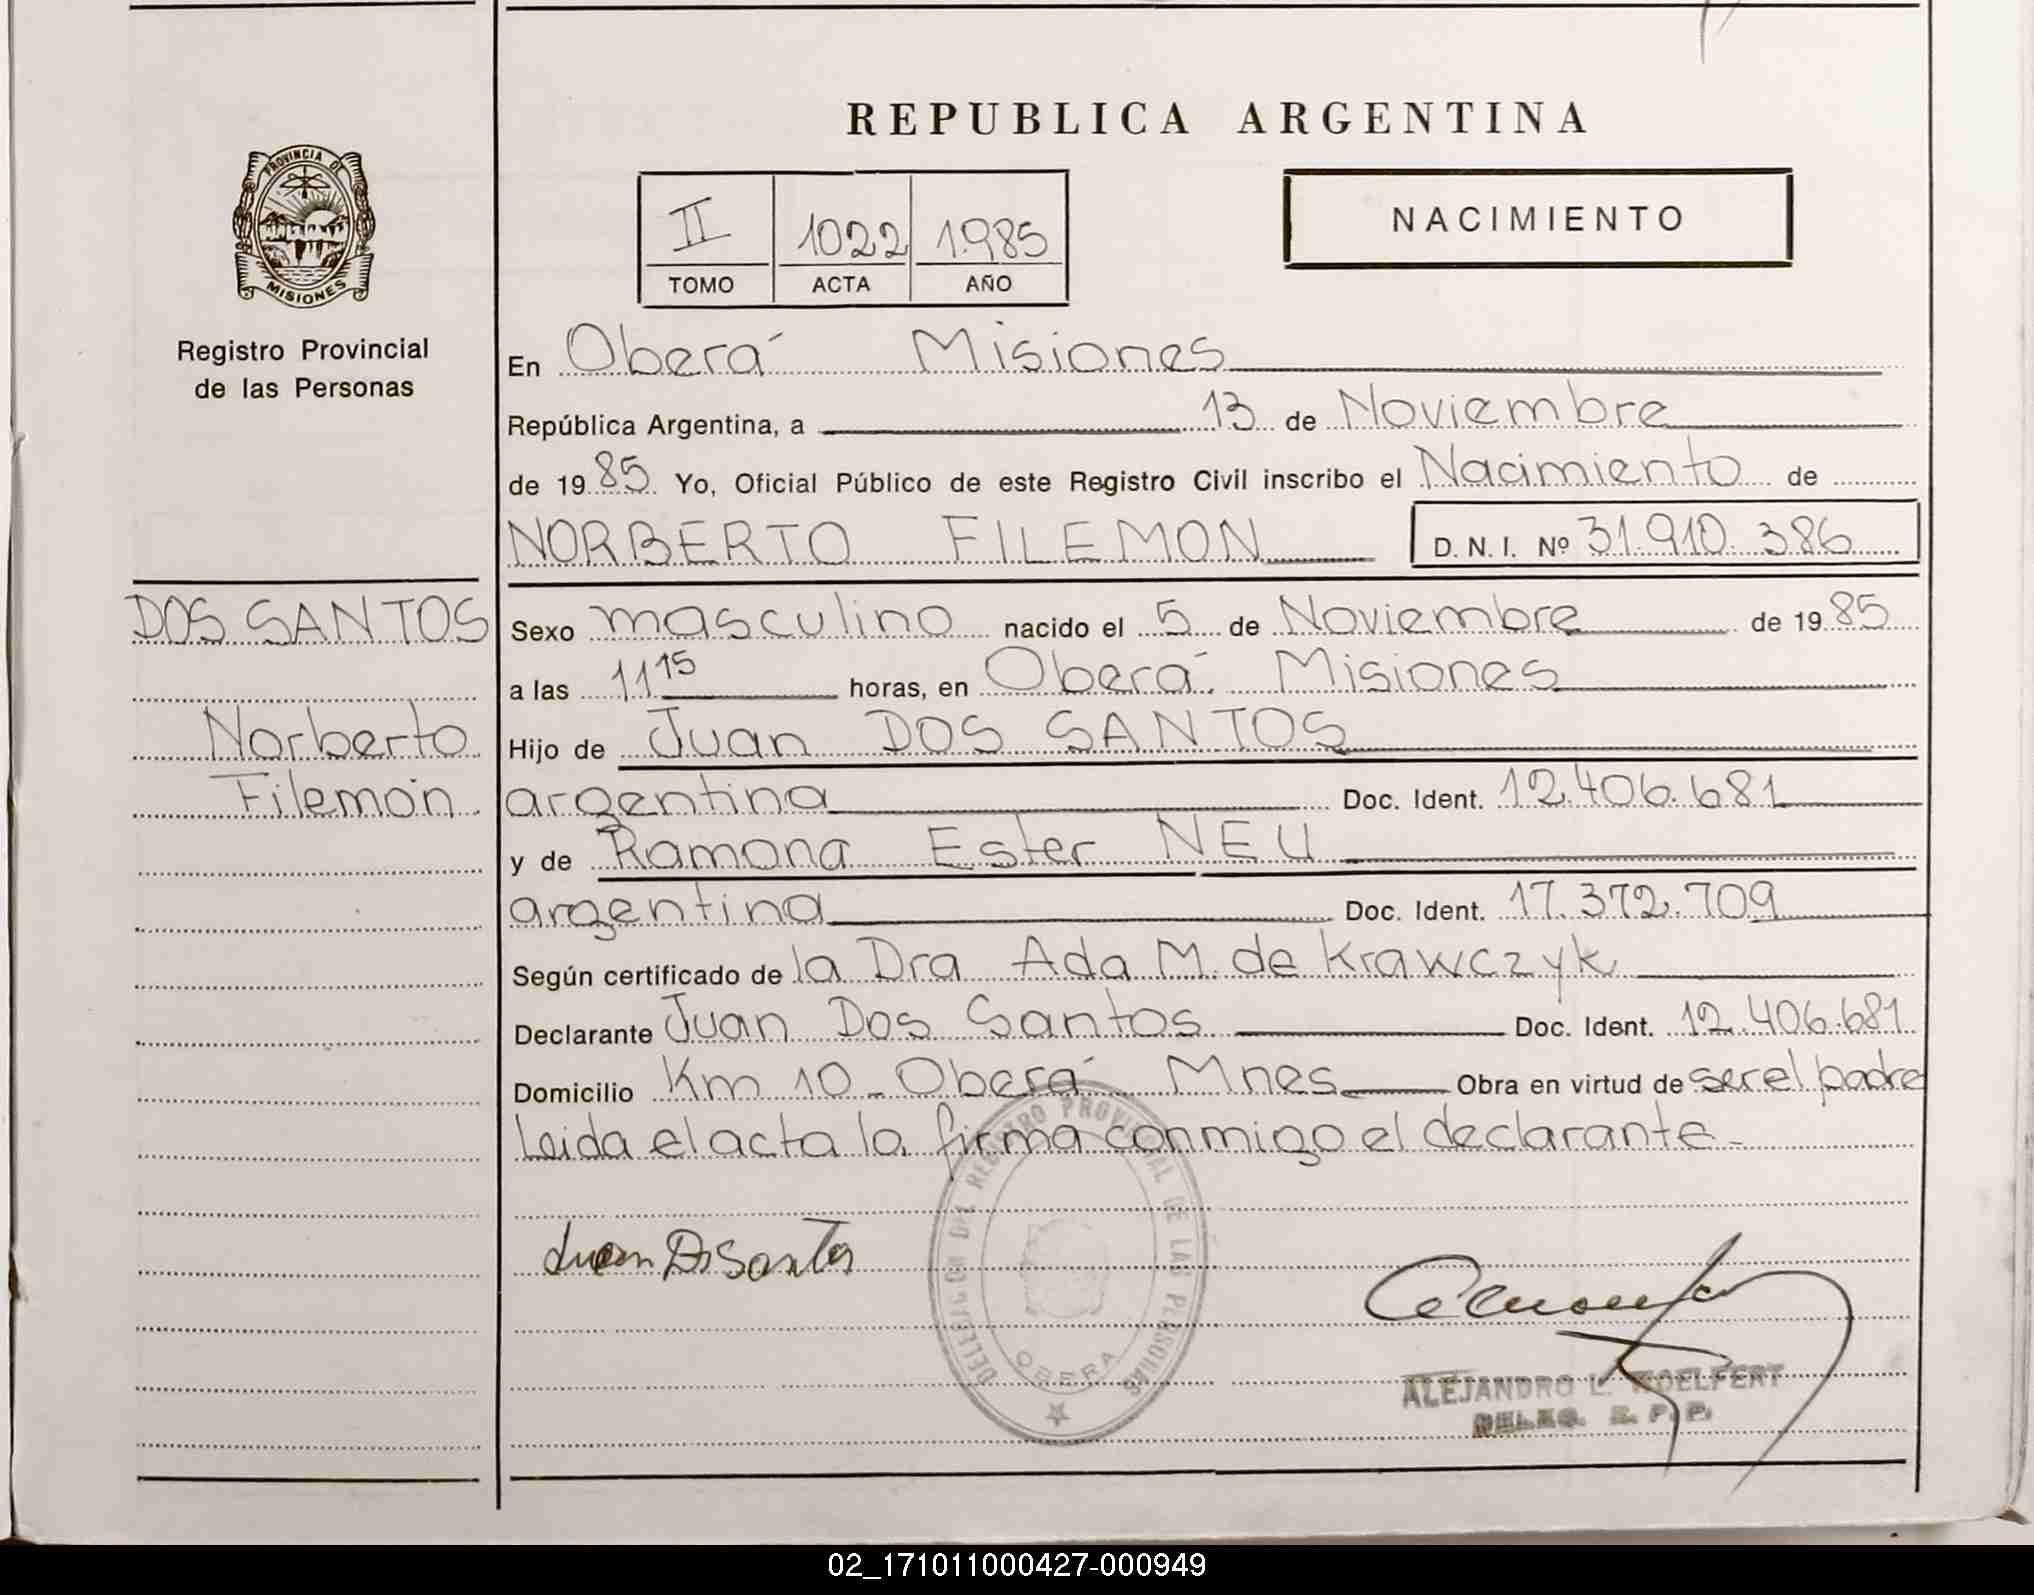 REPUBLICA ARGENTINA
PROVINCIA DE
MISIONES
Registro Provincial
de las Personas
II 1022 1.985
TOMO ACTA AÑO
NACIMIENTO
En Oberá Misiones
República Argentina, a 13 de Noviembre
de 1985 Yo, Oficial Público de este Registro Civil inscribo el Nacimiento de
NORBERTO FILEMON D. N. I. Nº 31.910.386
DOS SANTOS
Norberto
Filemón
Sexo masculino nacido el 5 de Noviembre de 1985
a las 11 15 horas, en Oberá Misiones
Hijo de Juan DOS SANTOS
argentina Doc. Ident. 12.406.681
y de Ramona Ester NEU
argentina Doc. Ident. 17.372.709
Según certificado de la Dra Ada M. de Krawczyk
Declarante Juan Dos Santos Doc. Ident. 12.406.681
Domicilio Km 10 - Oberá Mnes Obra en virtud de ser el padre
Leida el acta la firma conmigo el declarante -
DELEGACION DEL REGISTRO PROVINCIAL DE LAS PERSONAS
OBERA
Juan DSantos
ALEJANDRO L.
DELEG. R. P. P.
02_171011000427-000949